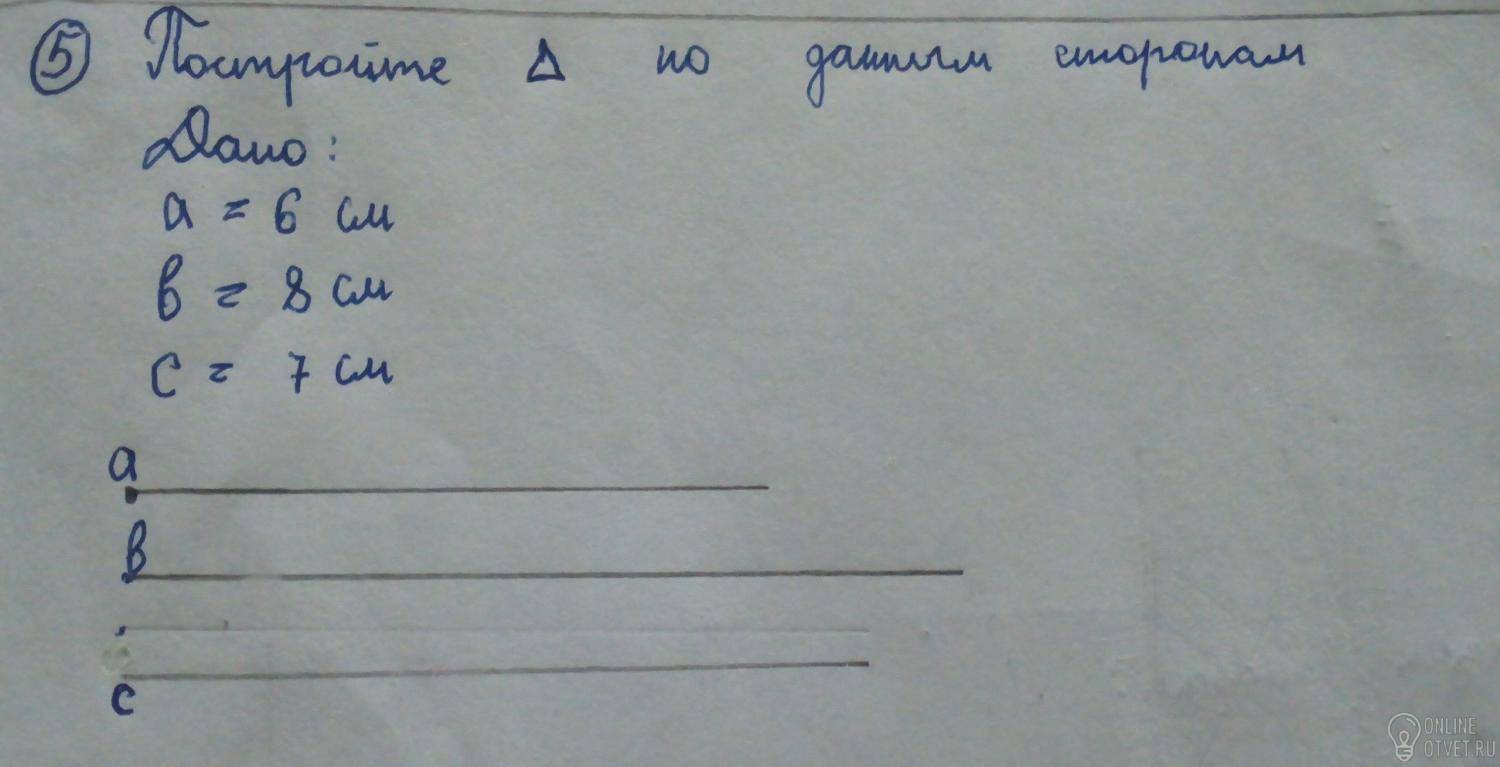 5 Постройте Δ по данным сторонам
Дано:
a = 6 см
в = 8 см
c = 7 см
a
в
c
ONLINE
OTVET.RU